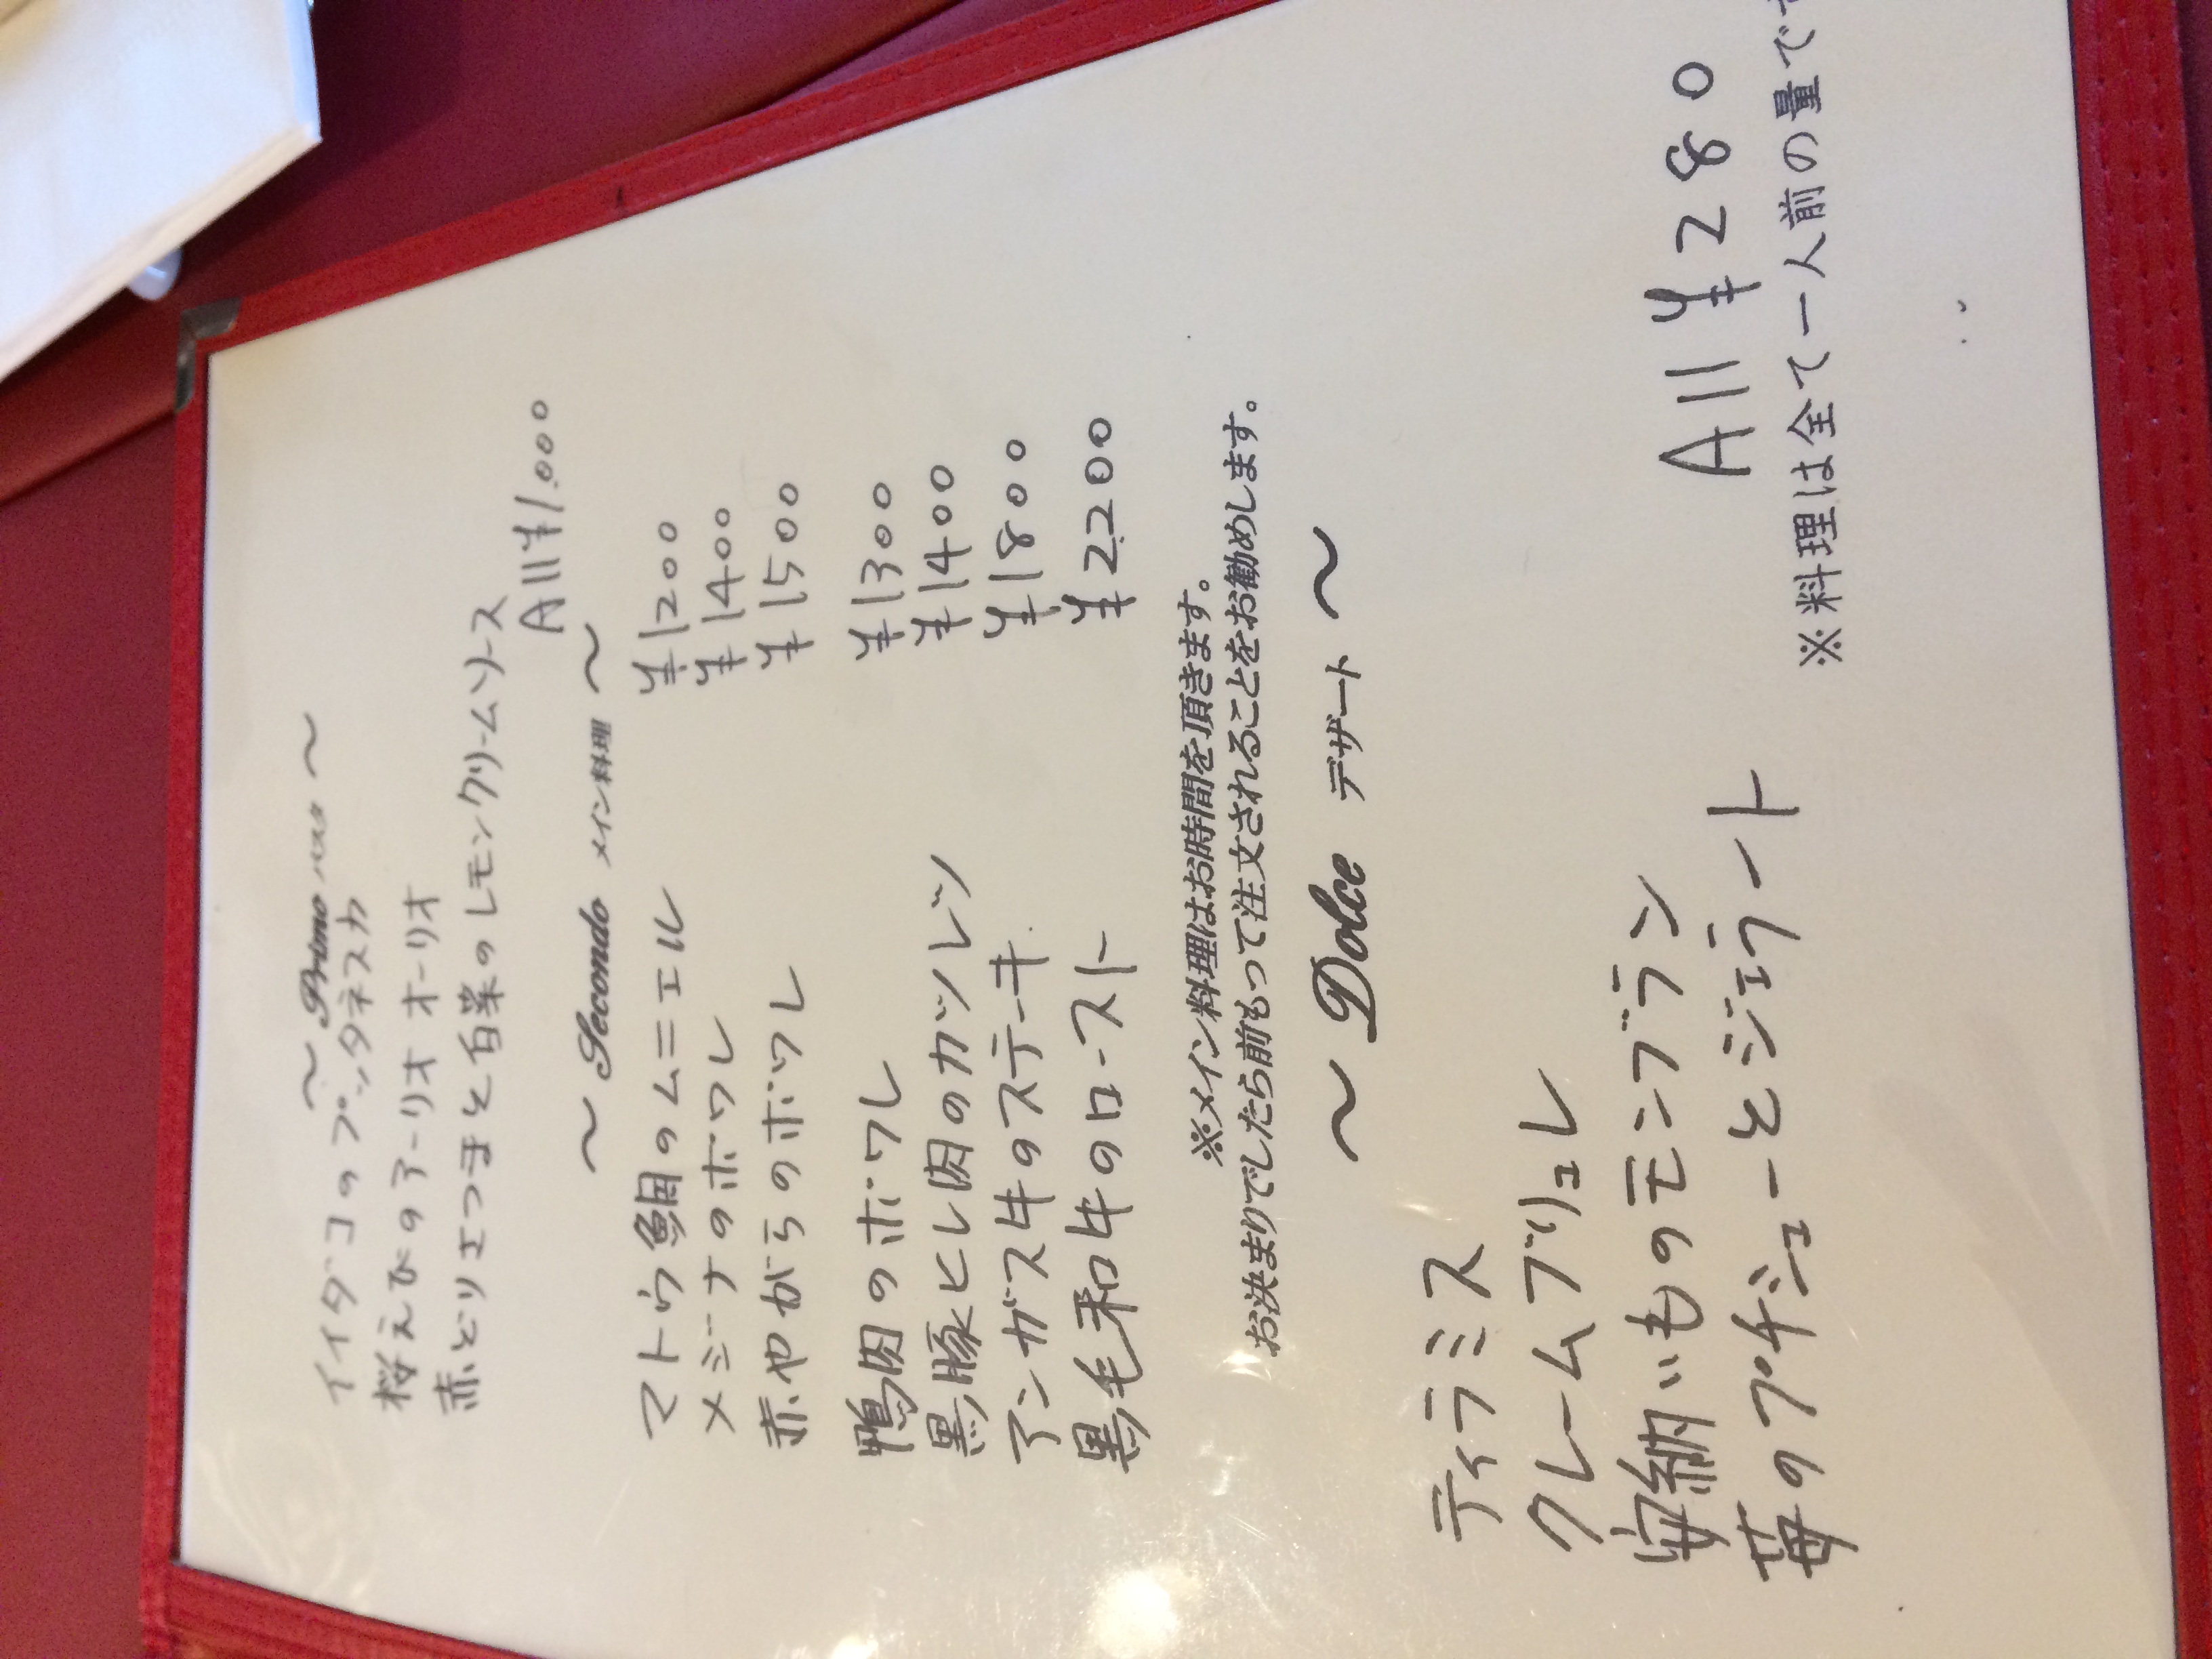 ～ Primo パスタ ～
イイダコのプッタネスカ
桜えびのアーリオ オーリオ
赤どりさつまと白菜のレモンクリームソース
All ¥1.000
～ Secondo メイン料理 ～
マトウ鯛のムニエル ¥1200
メジナのポワレ ¥1400
赤やがらのポワレ ¥1500
鴨肉のポワレ ¥1300
黒豚ヒレ肉のカツレツ ¥1400
アンガス牛のステーキ ¥1800
黒毛和牛のロースト ¥2200
※メイン料理はお時間を頂きます。
お決まりでしたら前もって注文されることをお勧めします。
～ Dolce デザート ～
ティラミス
クレームブリュレ
安納いものモンブラン
苺のプチシューとジェラート
All ¥280
※料理は全て一人前の量で